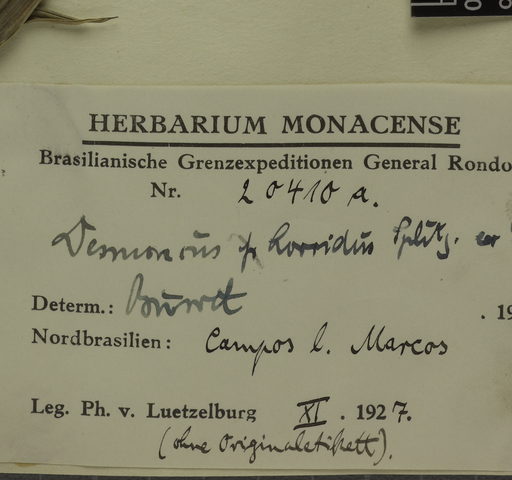 HERBARIUM MONACENSE
Brasilianische Grenzexpeditionen General Rondo
Nr. 20410 a.
Desmoncus horridus Splitg. ex
Determ.: Burret . 19
Nordbrasilien: Campos l. Marcos
Leg. Ph. v. Luetzelburg XI . 1927.
(ohne Originaletikett).